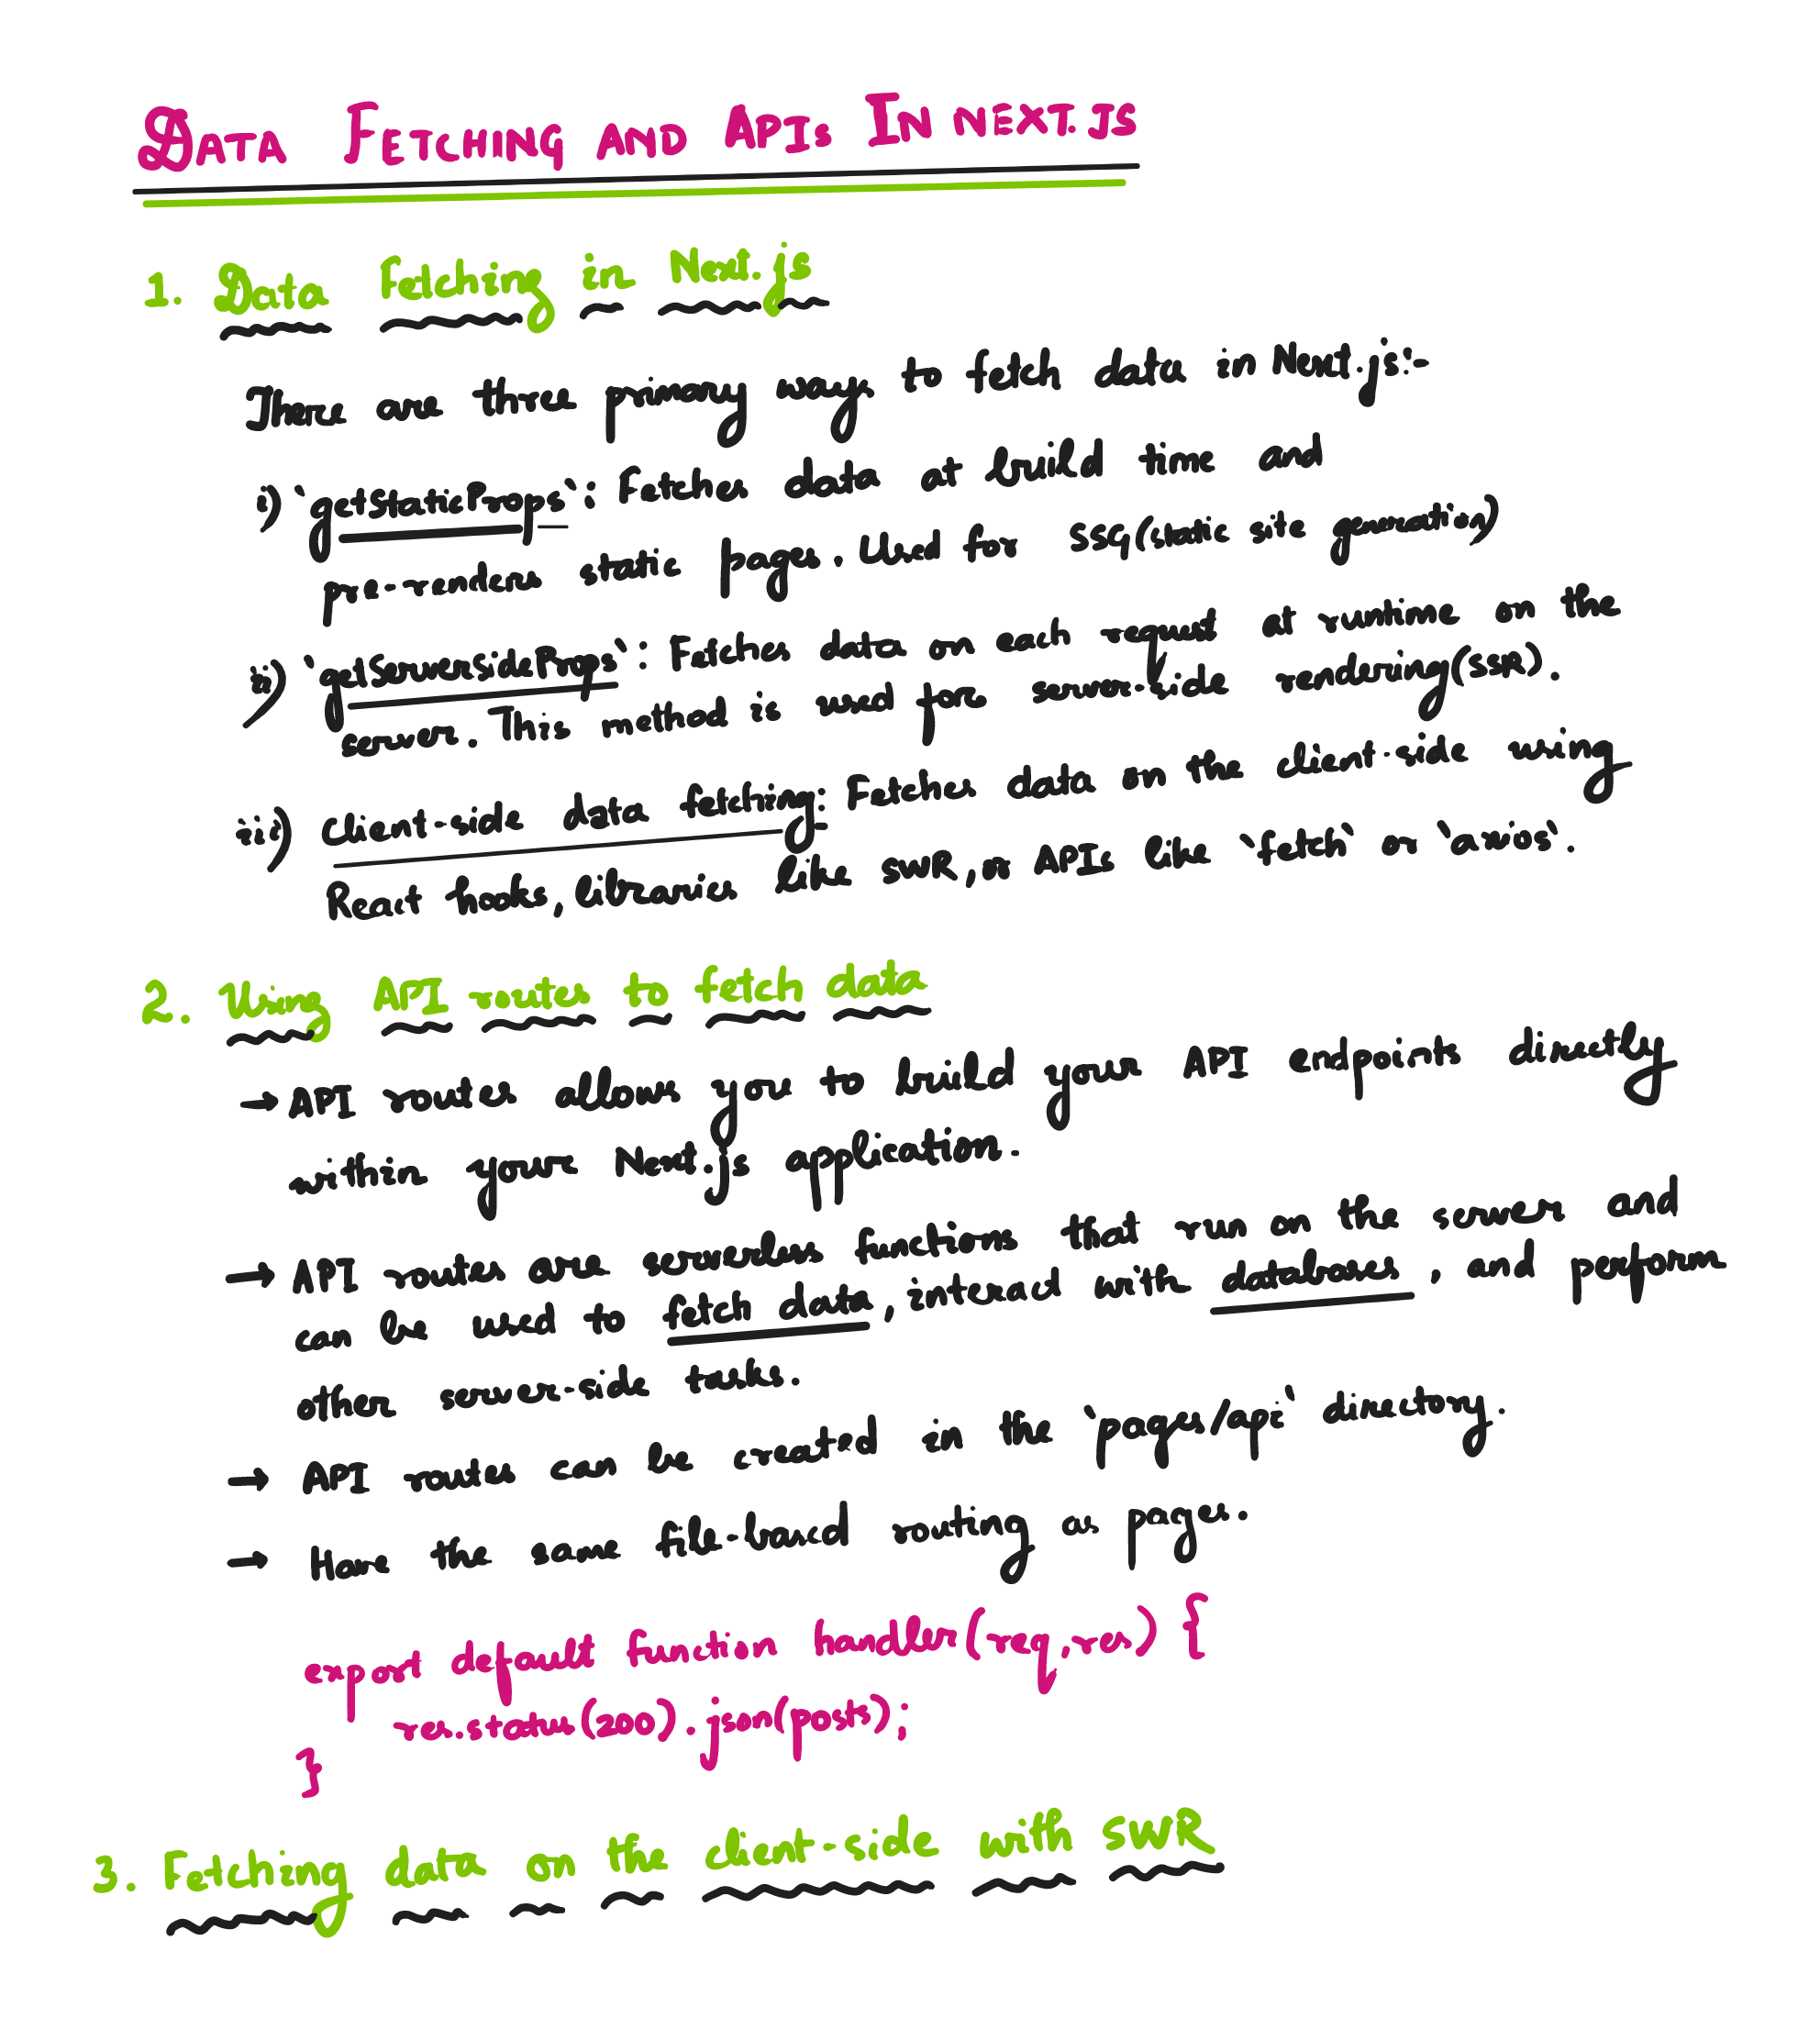 DATA FETCHING AND APIs IN NEXT.JS
1. Data Fetching in Next.js
There are three primary ways to fetch data in Next.js:-
i) `getStaticProps`: Fetches data at build time and
pre-renders static pages. Used for SSG(static site generation)
ii) `getServerSideProps`: Fetches data on each request at runtime on the
server. This method is used for server-side rendering(SSR).
iii) Client-side data fetching: Fetches data on the client-side using
React hooks, libraries like SWR, or APIs like `fetch` or `axios`.
2. Using API routes to fetch data
→ API routes allows you to build your API endpoints directly
within your Next.js application.
→ API routes are serverless functions that run on the server and
can be used to fetch data, interact with databases, and perform
other server-side tasks.
→ API routes can be created in the `pages/api` directory.
→ Have the same file-based routing as pages.
export default function handler(req,res) {
res.status(200).json(posts);
}
3. Fetching data on the client-side with SWR